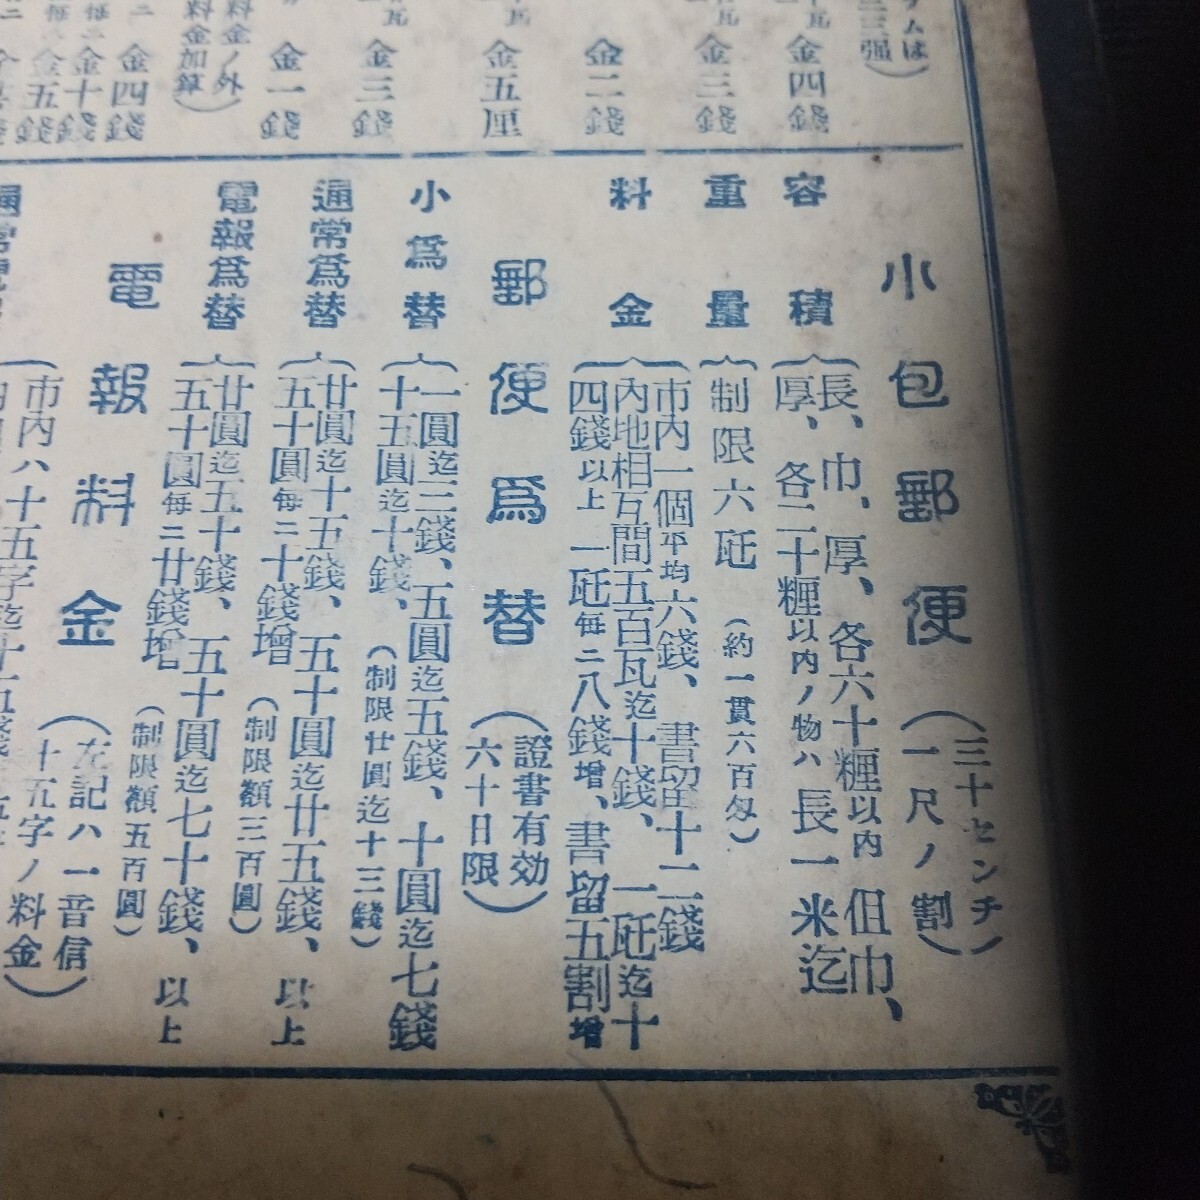 ラムは
三三强)
金四錢
金三錢
金二錢
金五厘
金三錢
金一錢
料金ノ外
料金加算)
金四錢
金十錢
金五錢
小包郵便
(三十センチ
一尺ノ割)
容積
長、巾、厚、各六十糎以內 但巾、
厚、各二十糎以內ノ物ハ長一米迄
重量
制限六瓩(約一貫六百匁)
料金
市內一個平均六錢、書留十二錢
內地相互間五百瓦迄十錢、一瓩迄十
四錢以上一瓩每ニ八錢增、書留五割增
郵便爲替
(證書有効
六十日限)
小爲替
一圓迄三錢、五圓迄五錢、十圓迄七錢
十五圓迄十錢、(制限廿圓迄十三錢)
通常爲替
廿圓迄十五錢、五十圓迄廿五錢、以上
五十圓每ニ十錢增(制限額三百圓)
電報爲替
廿圓迄五十錢、五十圓迄七十錢、以上
五十圓每ニ廿錢增(制限額五百圓)
電報料金
(左記ハ一音信
十五字ノ料金)
市內ハ十五字迄十五錢